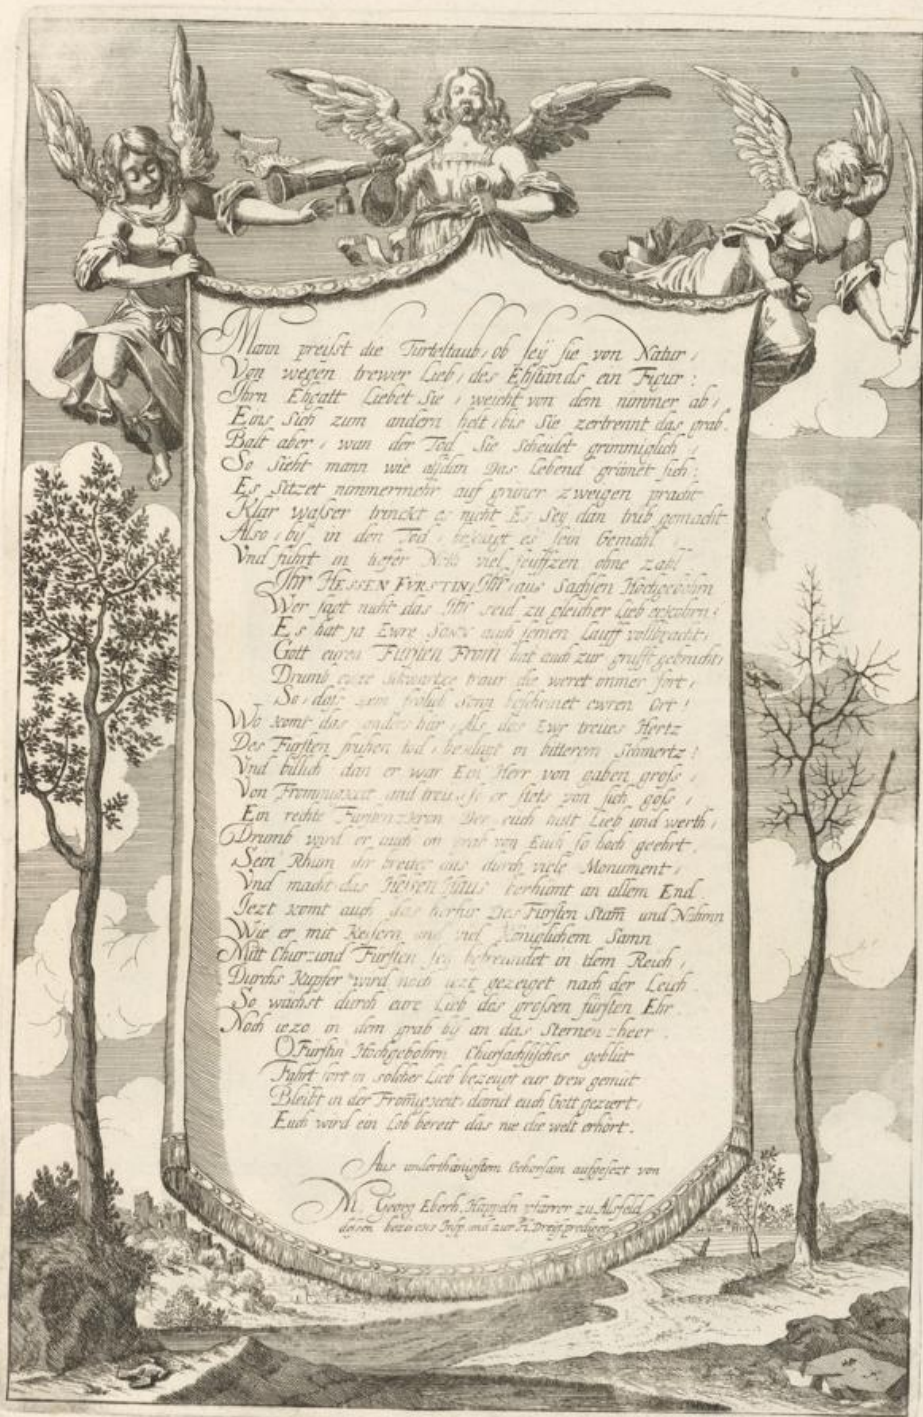 Mann preißt die Turteltaub, ob seÿ sie von Natur,
Von wegen trewer Lieb, des Ehstands ein Figur:
Ihrn Ehgatt Liebet Sie, weicht von dem nimmer ab,
Eins Sich zum andern helt, bis Sie zertrennt das grab.
Balt aber, wan der Tod Sie Scheidet grimmiglich,
So Sieht mann wie alßdan Das Lebend grämet sich:
Es Sitzet nimmermehr auf grüner zweigen pracht
Klar waßer trinckt es nicht Es Sey dan trüb gemacht
Also, biß in den Tod, es sein Gemahl
Vnd führt in tiefer Noht viel seuffzen ohne zahl
Ihr HESSEN FVRSTIN, Ihr aus Sachsen Hochgebohrn
Wer sagt nicht das Ihr seid zu gleicher Lieb
Es hat ja Ewre auch seinen Lauff vollbracht,
Gott euren Fürsten From hat auch zur grufft gebracht,
Drumb eure Schwartze traur die weret immer fort,
So, daß kein frölich Sonn bescheinet ewren Ort!
Wo komt das anders här, Als das Ewr treues Hertz
Des Fürsten frühen tod, beklagt in bitterem Schmertz!
Vnd billich dan er war Ein Herr von gaben groß,
Von Frommigkeit und treu er stets von sich goß,
Ein rechte Der euch hielt Lieb und werth,
Drumb wird er auch im grab von Euch so hoch geehrt.
Sein Rhum ihr breitet aus durch viele Monument,
Vnd macht das Hessen Haus berhümt an allem End.
Jezt komt auch das herfür Des Fürsten Stam̄ und Nahmn
Wie er mit Keisern, und viel Königlichem Samn
Mitt Chur: und Fürsten seÿ befreundet in dem Reich,
Durchs Kupfer wird noch iezt gezeiget nach der Leich.
So wächst durch eure Lieb des großen fürsten Ehr
Noch iezo in dem grab biß an das Sternen heer.
O Fürstin Hochgebohrn Chursächsisches geblüt
Fahrt fort in solcher Lieb bezeugt eur trew gemüt
Bleibt in der From̄igkeit, damit euch Gott geziert,
Euch wird ein Lob bereit das nie die welt erhört.
Aus underthänigstem Gehorsam aufgesezt von
M. Georg Eberh. Happeln pfarrer zu Alsfeld
und zur H. Dreif. predigern